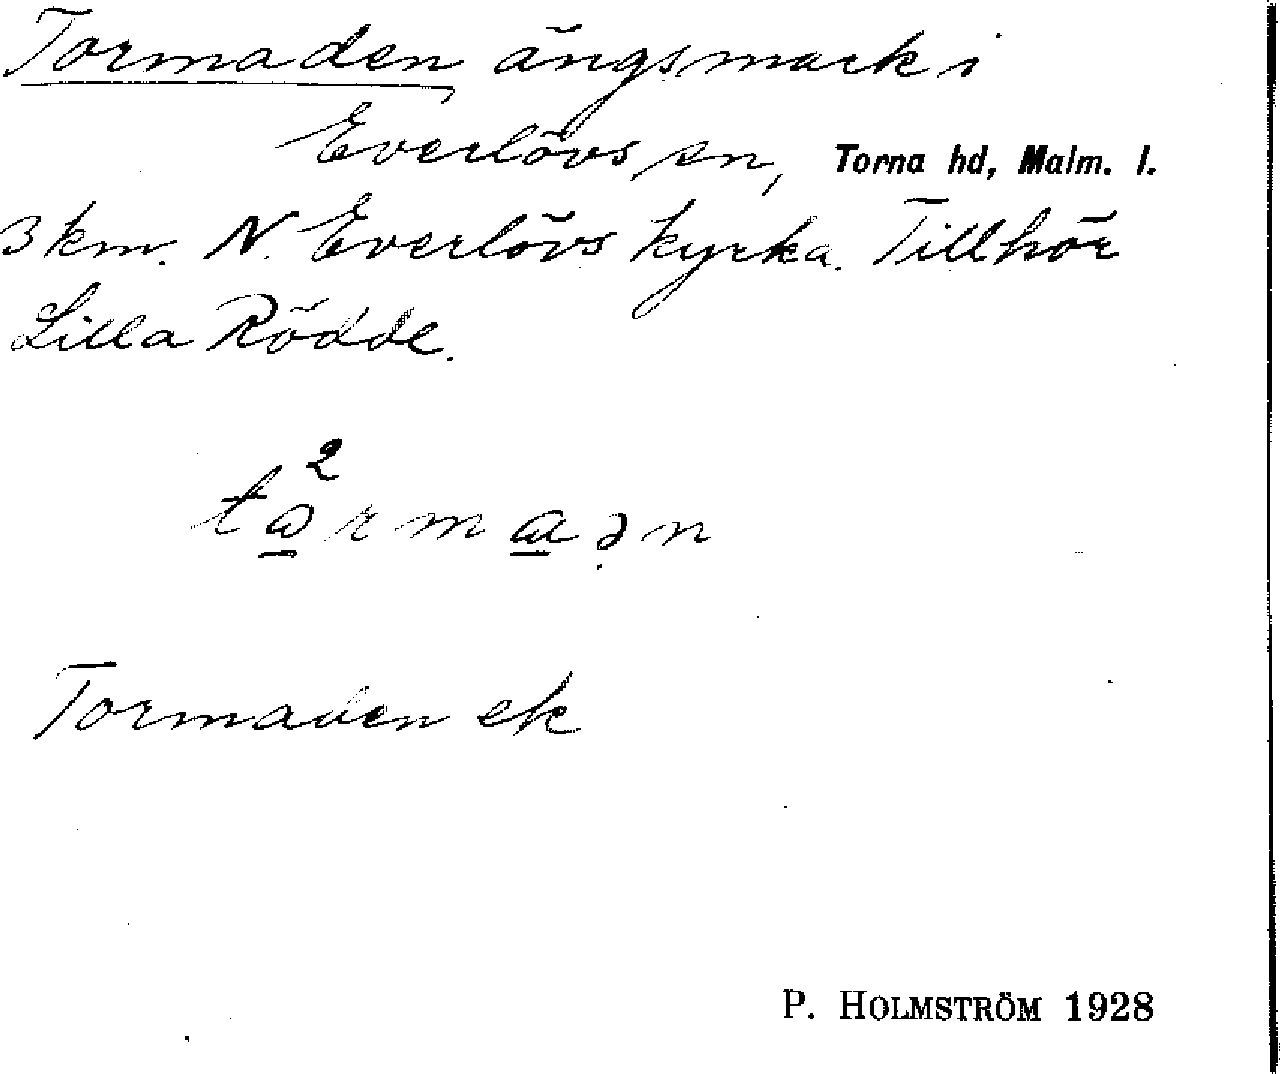 Tormaden ängsmark i
Everlövs sn, Torna hd, Malm. l.
3 km. N. Everlövs kyrka. Tillhör
Lilla Rödde.
Tormaden ek
P. HOLMSTRÖM 1928